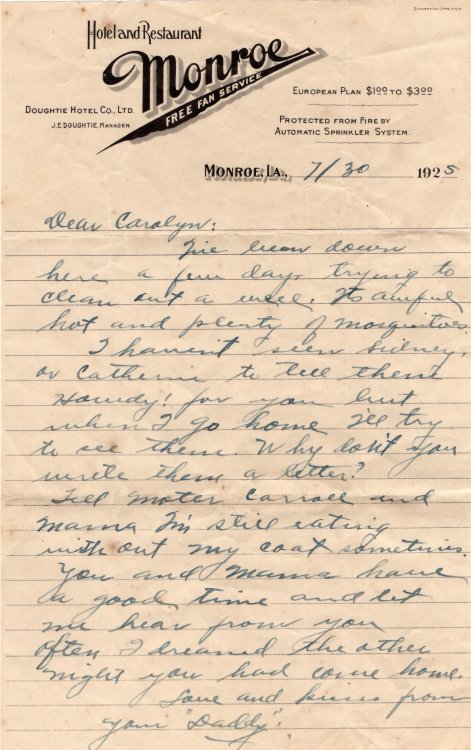 Hotel and Restaurant
Monroe
FREE FAN SERVICE
DOUGHTIE HOTEL CO., LTD.
J.E. DOUGHTIE, MANAGER
EUROPEAN PLAN $1.00 TO $3.00
PROTECTED FROM FIRE BY
AUTOMATIC SPRINKLER SYSTEM.
MONROE, LA., 7/30 1925
Dear Carolyn:
I've been down
here a few days trying to
clean out a well. Its awful
hot and plenty of mosquitoes.
I havent seen Sidney,
or Catherine to tell them
Howdy! for you but
when I go home I'll try
to see them. Why don't you
write them a letter?
Tell Moter Carroll and
Mama I'm still eating
with out my coat sometimes.
You and Mama have
a good time and let
me hear from you
often. I dreamed the other
night you had come home.
Love and kisses from
your "Daddy".